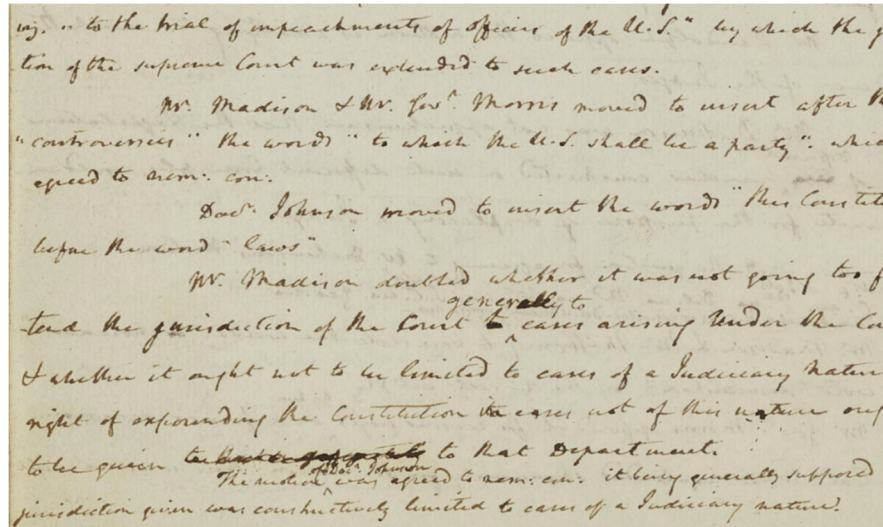 ing. "to the trial of impeachments of officers of the U.S." by which the
tion of the supreme Court was extended to such cases.
Mr. Madison & Mr. Govr. Morris moved to insert after the
"controversies" the words "to which the U.S. shall be a party". which
agreed to nem: con:
Docr. Johnson moved to insert the words "this Constitu
before the word "laws"
Mr. Madison doubted whether it was not going too f
generally to
tend the jurisdiction of the Court cases arising Under the Con
& whether it ought not to be limited to cases of a Judiciary Nature
right of expounding the Constitution in cases not of this nature oug
to be given to that Department.
The motion of Docr. Johnson was agreed to nem: con: it being generally supposed
jurisdiction given was constructively limited to cases of a Judiciary nature.